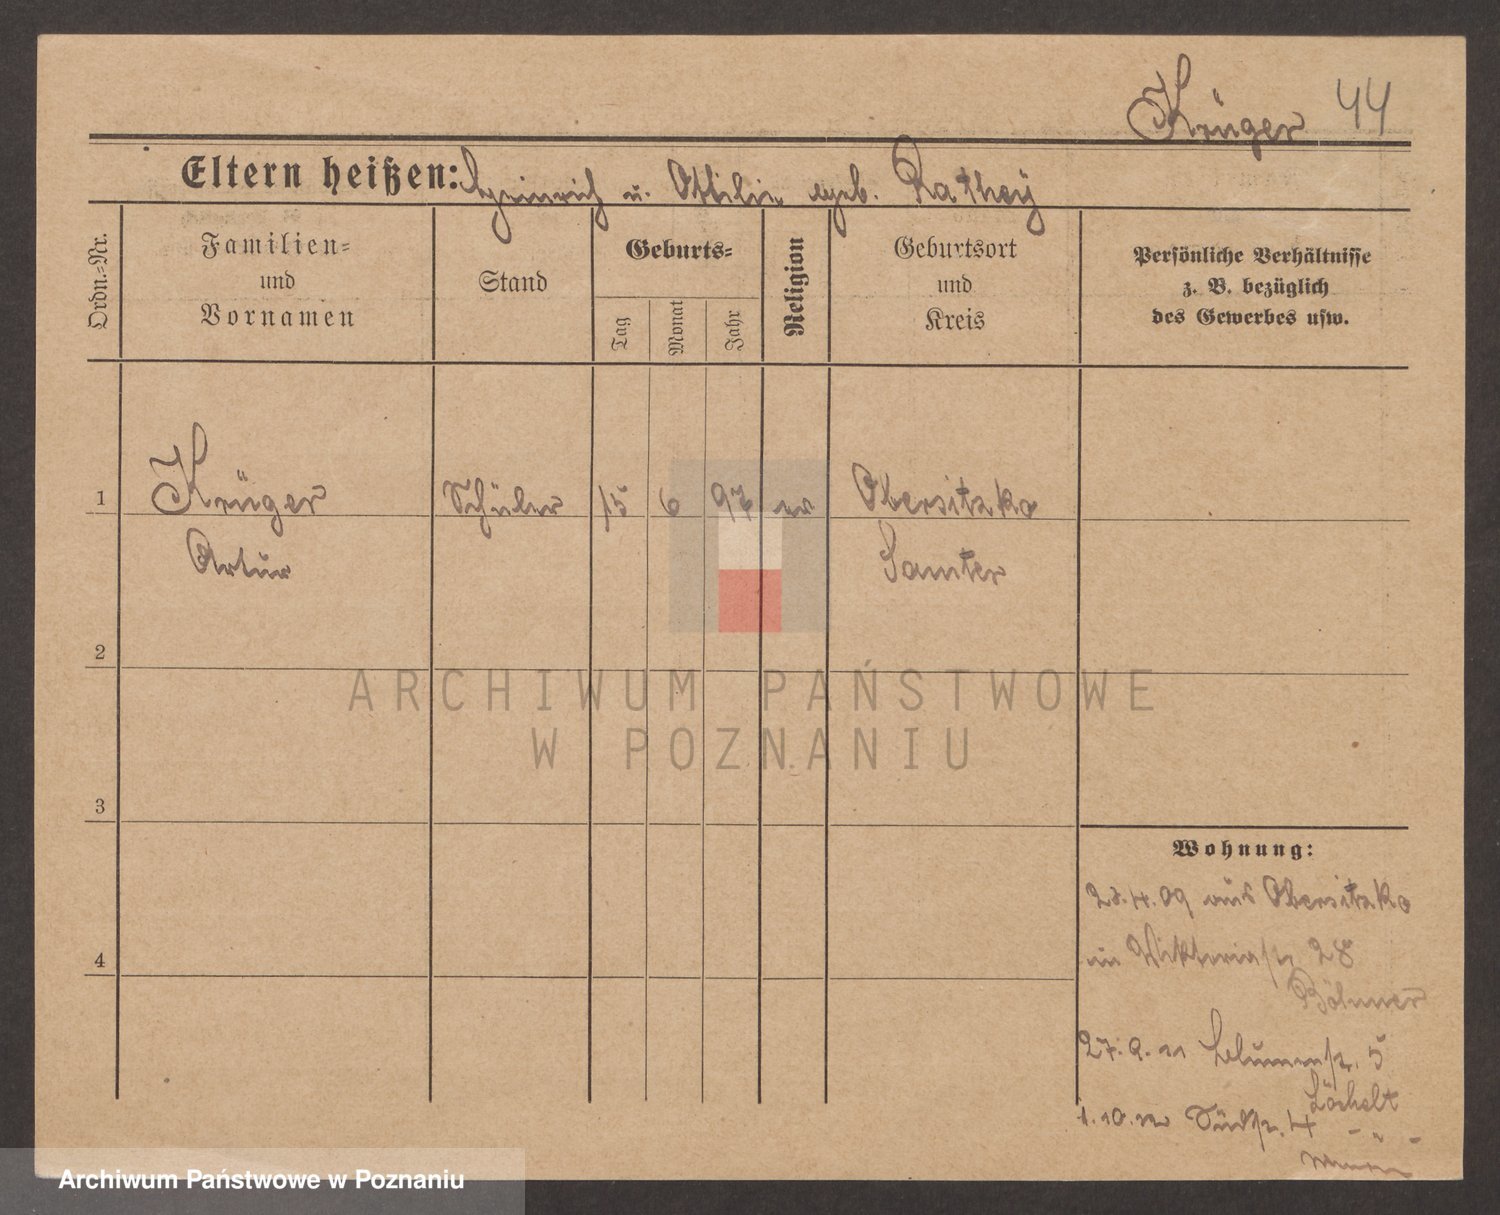 Krüger 44
Eltern heißen: Heinrich u. Ottilie geb. Rathey
Ordn.-Nr.
Familien-
und
Vornamen
Stand
Geburts-
Tag
Monat
Jahr
Religion
Geburtsort
und
Kreis
Persönliche Verhältnisse
z. B. bezüglich
des Gewerbes usw.
1 Krüger Schüler 15 6 97 ev Obersitzko
Artur Samter
2
3
4
ARCHIWUM PAŃSTWOWE
W POZNANIU
Wohnung:
4.09 aus Obersitzko
Viktoriastr 28
Böhmer
27.9.11 Blumenstr. 5
Löchelt
1.10.12 Südstr. 4 - " -
Archiwum Państwowe w Poznaniu